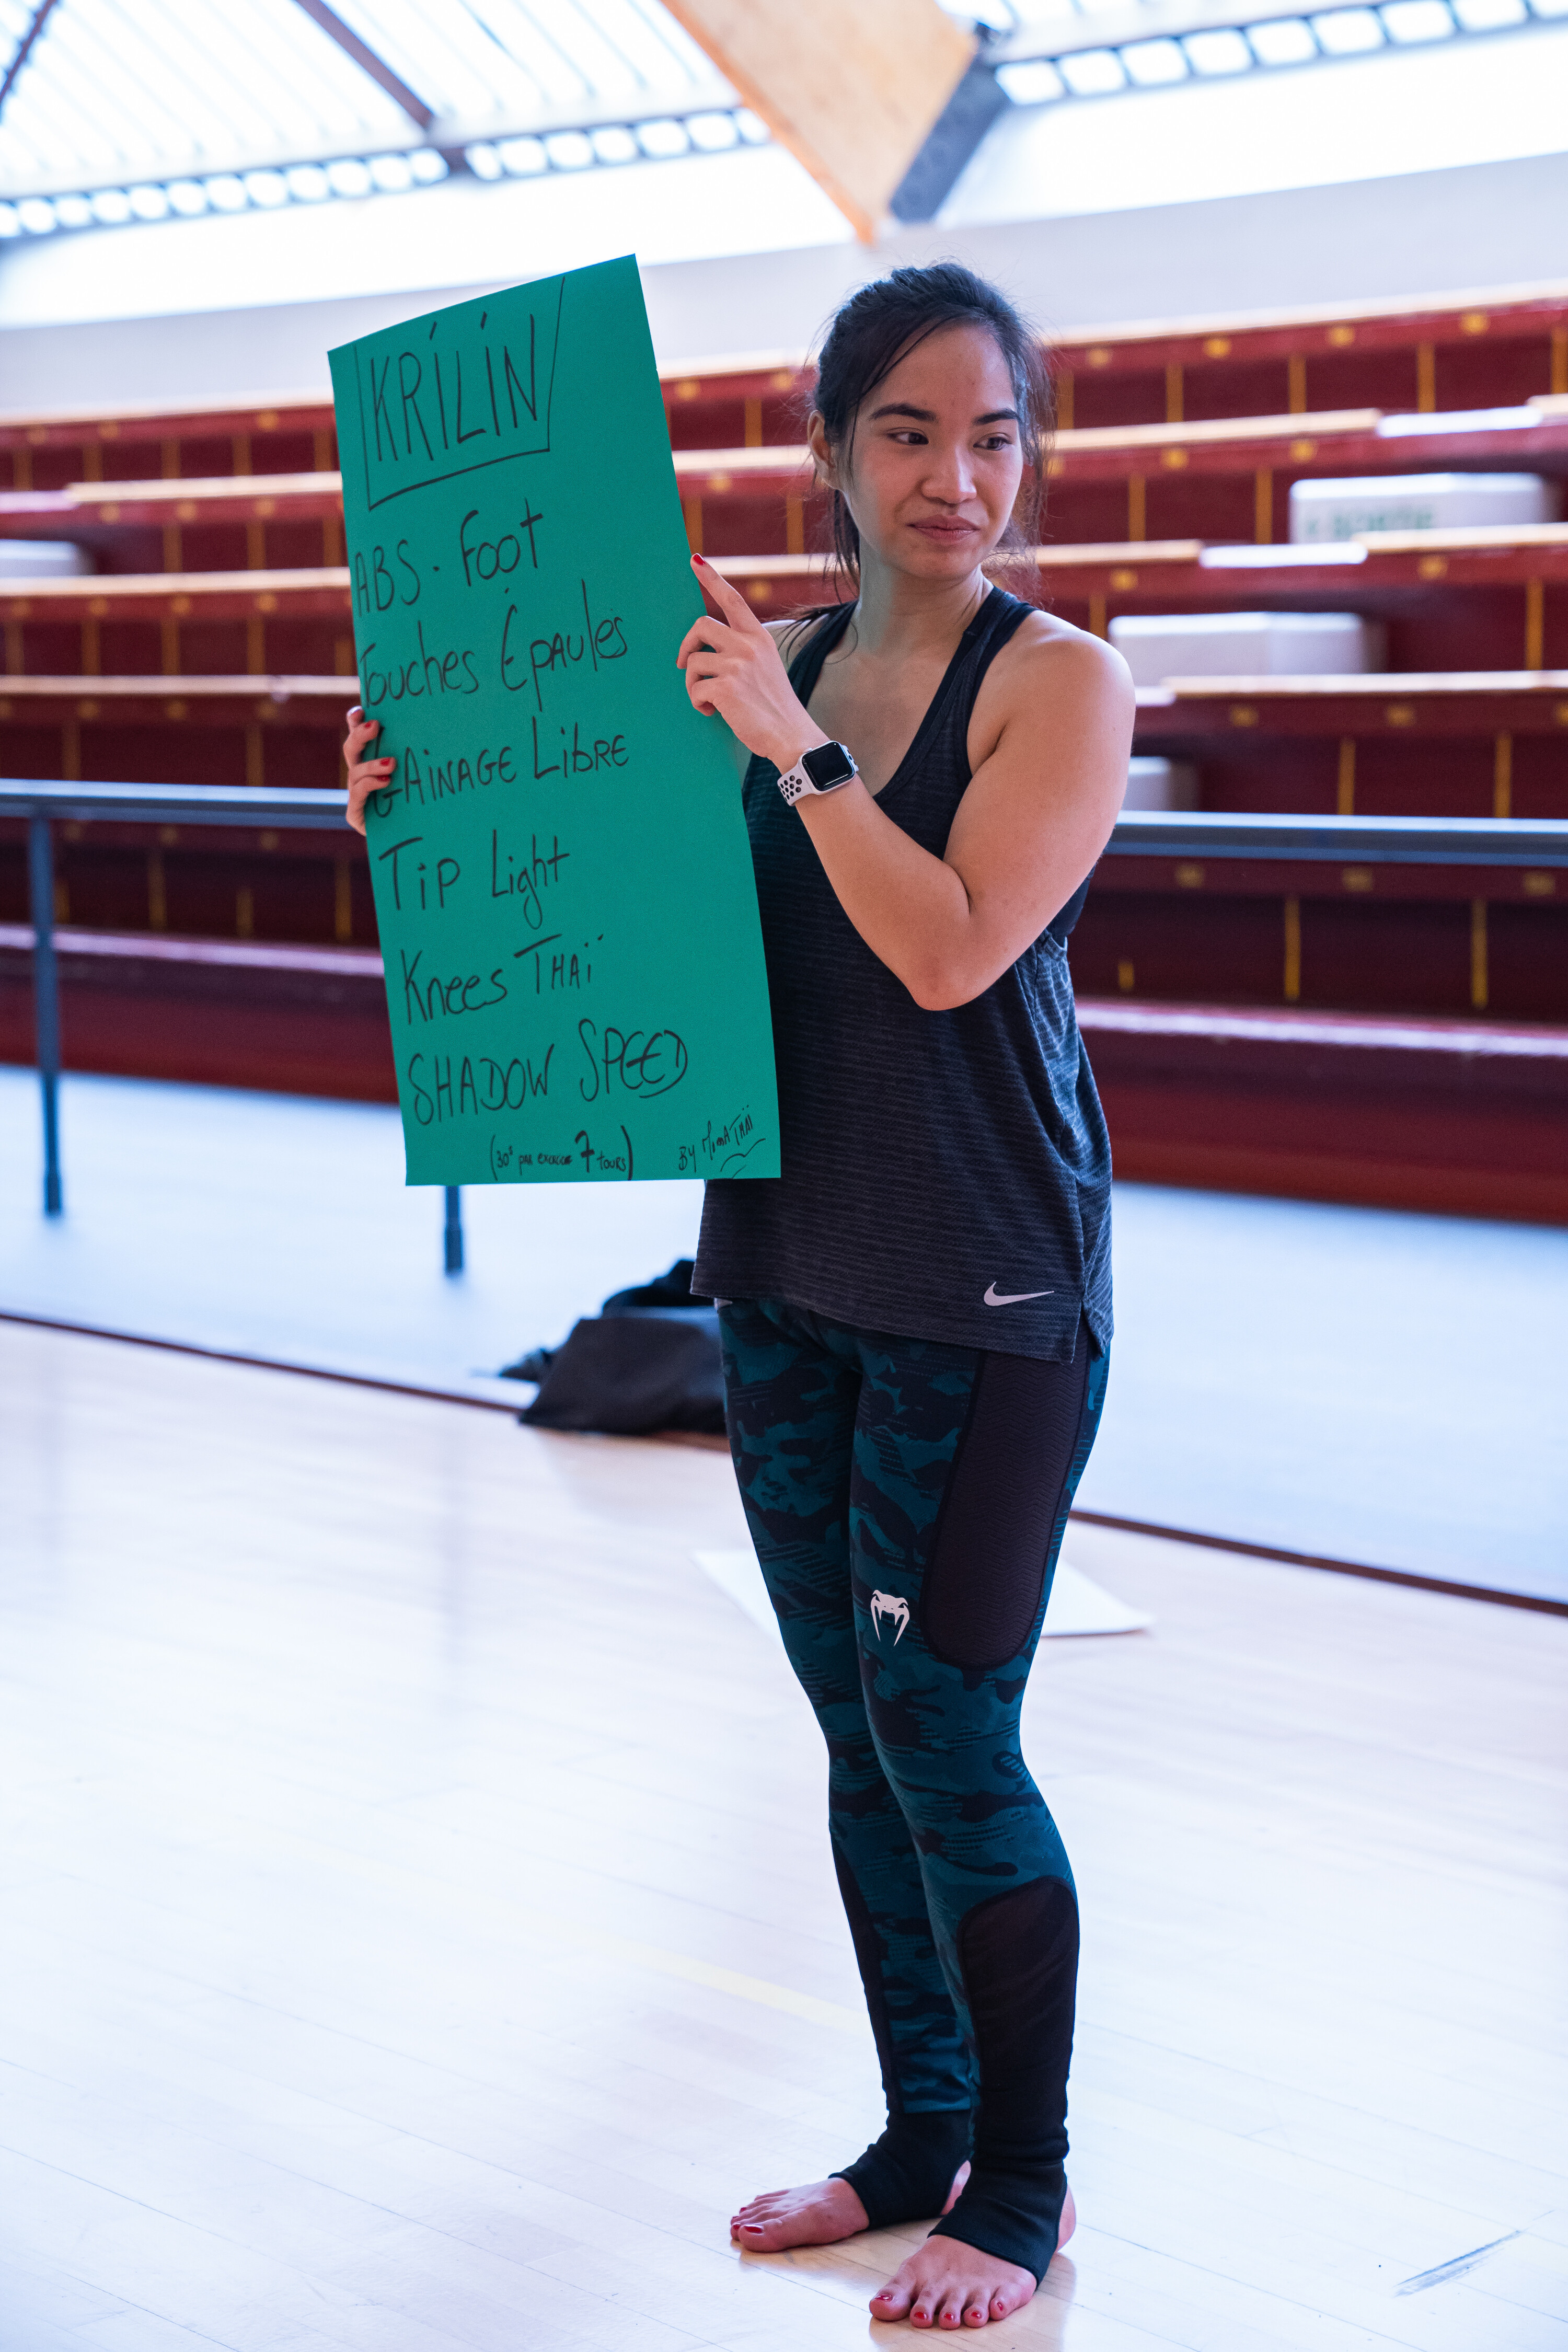 KRILIN
ABS. Foot
Touches Épaules
GAINAGE LibRE
Tip Light
Knees THAÏ
SHADOW SPEED
(30s par exercice 7 tours)
BY MomA THAÏ
SORTIE